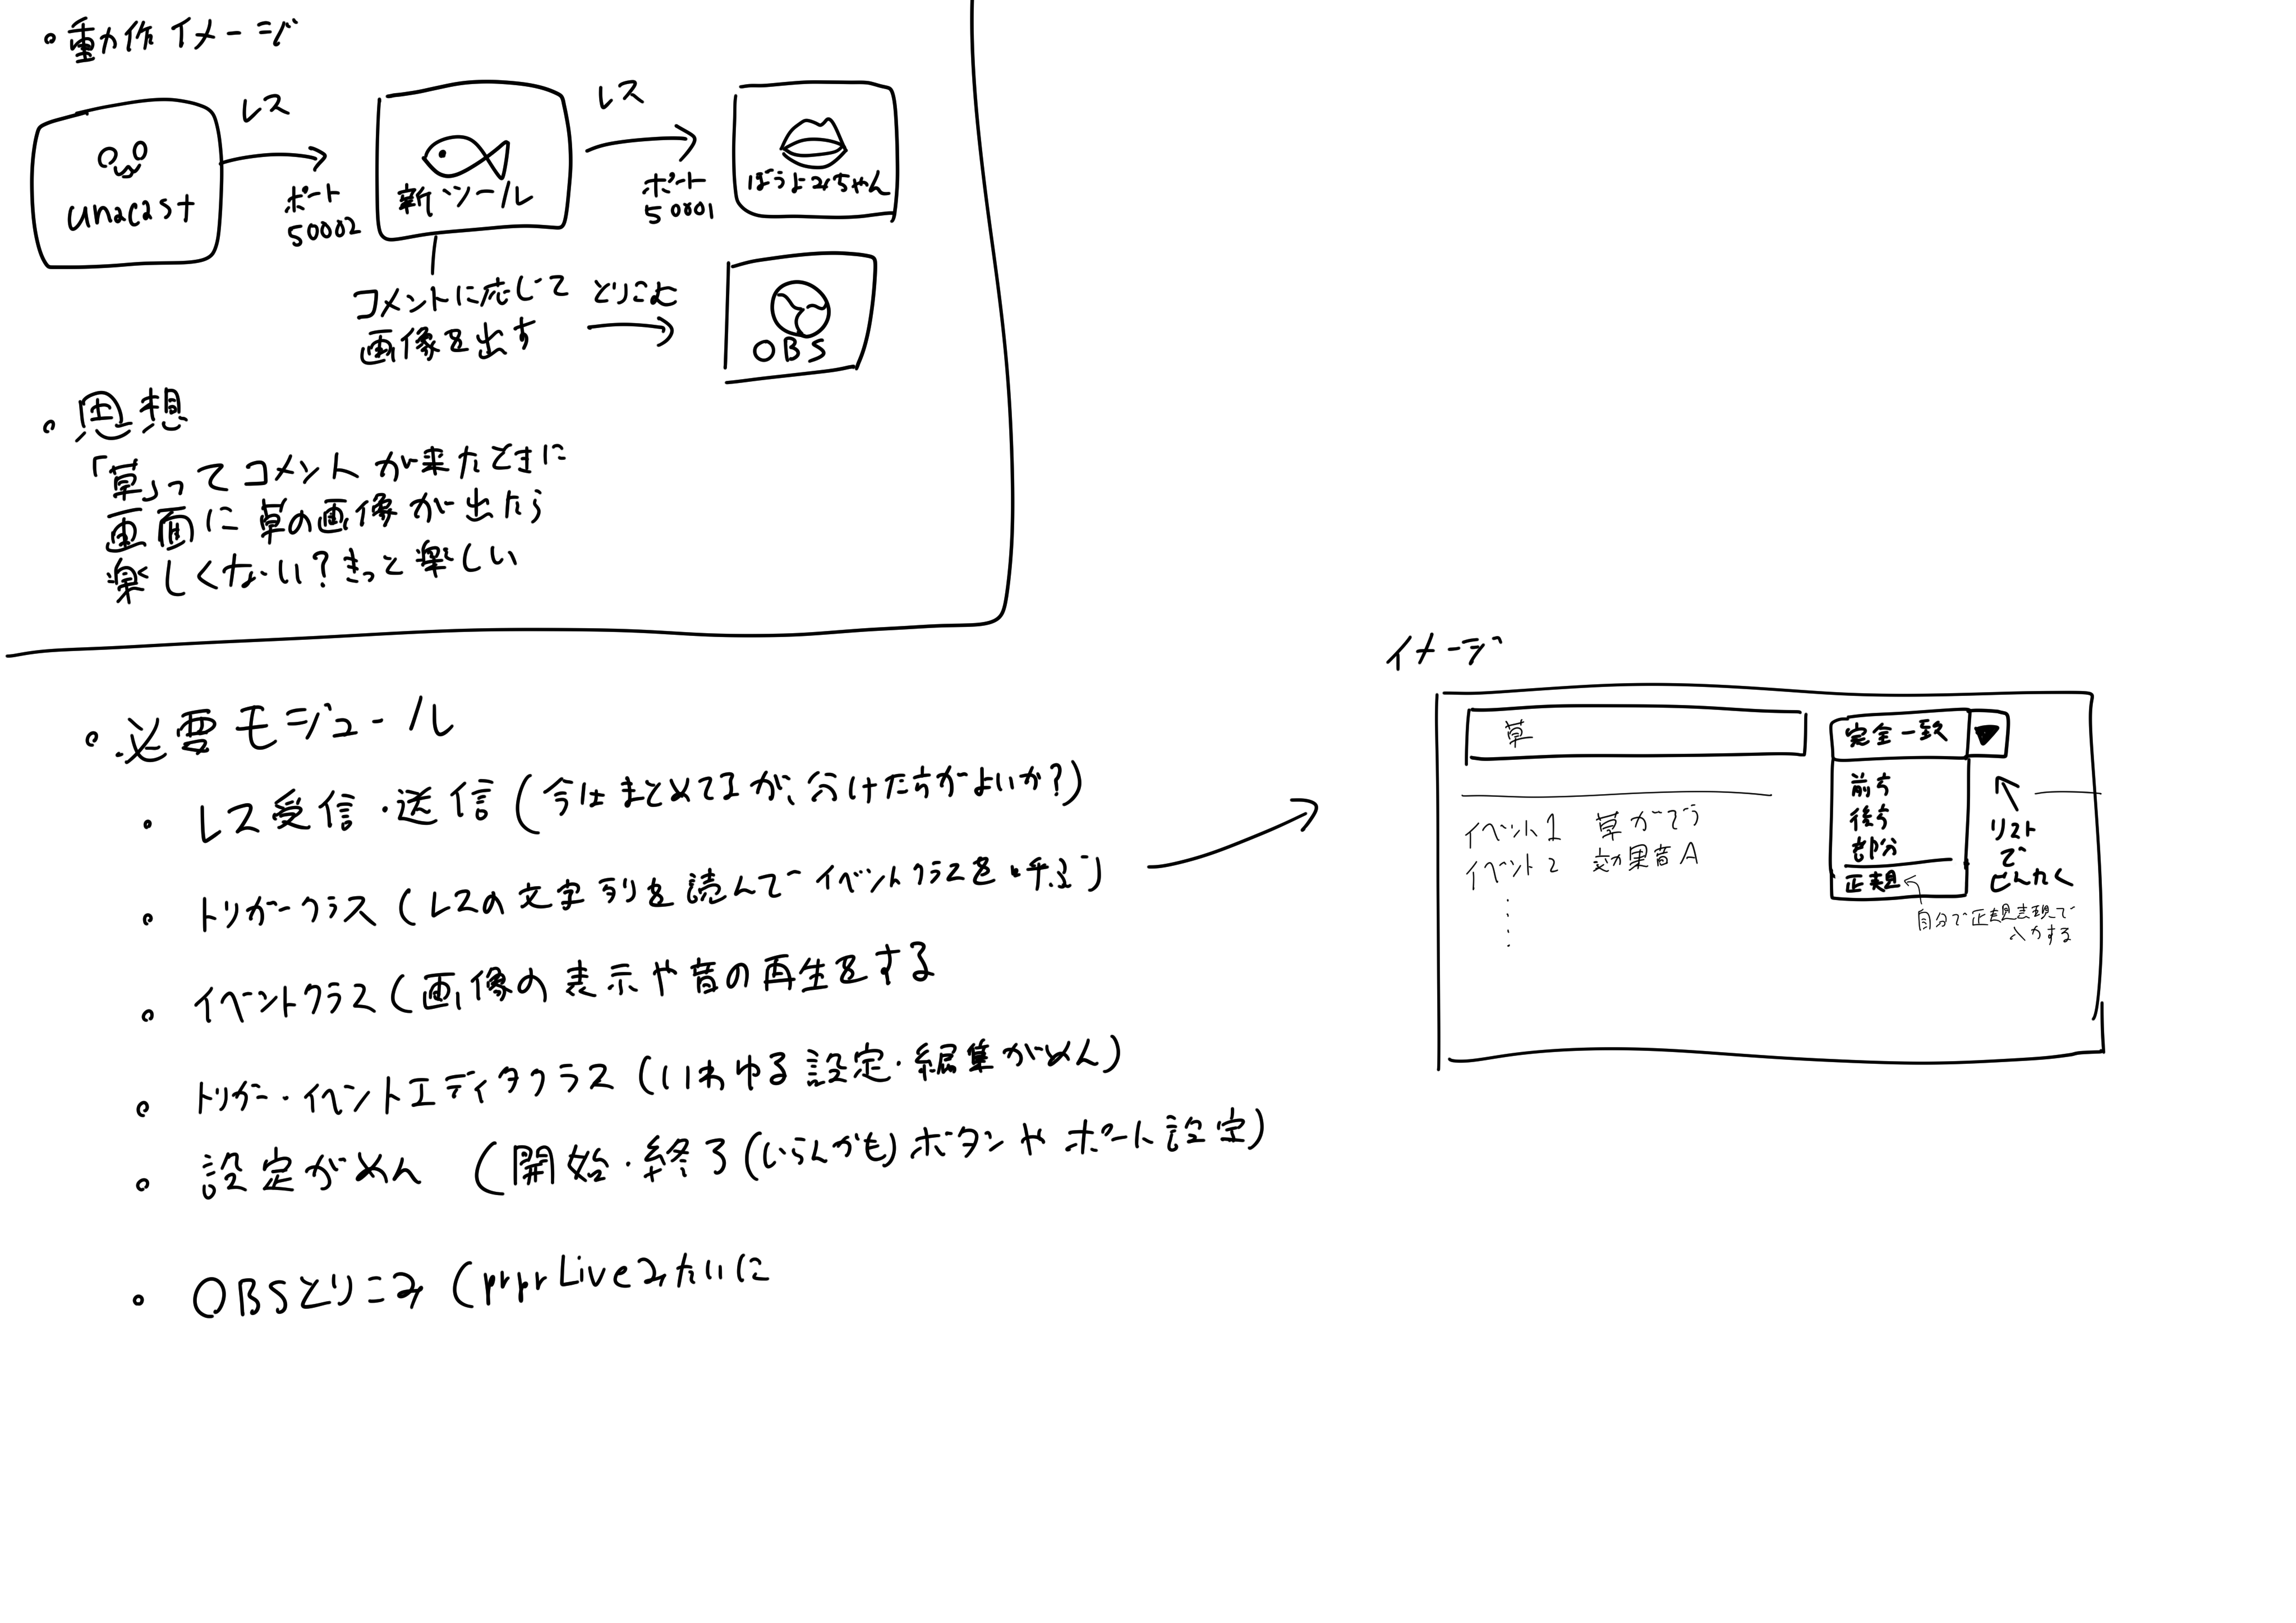 ・動作イメージ
unacast
レス
ポート
50002
新ツール
レス
ポート
50001
ぼうよみちゃん
コメントに応じて
画像を出す
とりこむ
OBS
・思想
「草」ってコメントが来たときに
画面に草の画像が出たら
楽しくない?きっと楽しい
・必要モジュール
・レス受信・送信(今はまとめてるが、分けた方がよいか?)
・トリガークラス(レスの文字列を読んでイベントクラスを呼ぶ)
・イベントクラス(画像の表示や音の再生をする
・トリガー・イベントエディタクラス(いわゆる設定・編集がめん)
・設定がめん(開始・終了(いらんかも)ボタンやポート設定)
・OBSとりこみ(prprLiveみたいに
イメージ
草
完全一致 ▼
前方
後方
部分
正規
リスト
で
せんたく
自分で正規表現で
入力する
イベント1 草がでる
イベント2 効果音A